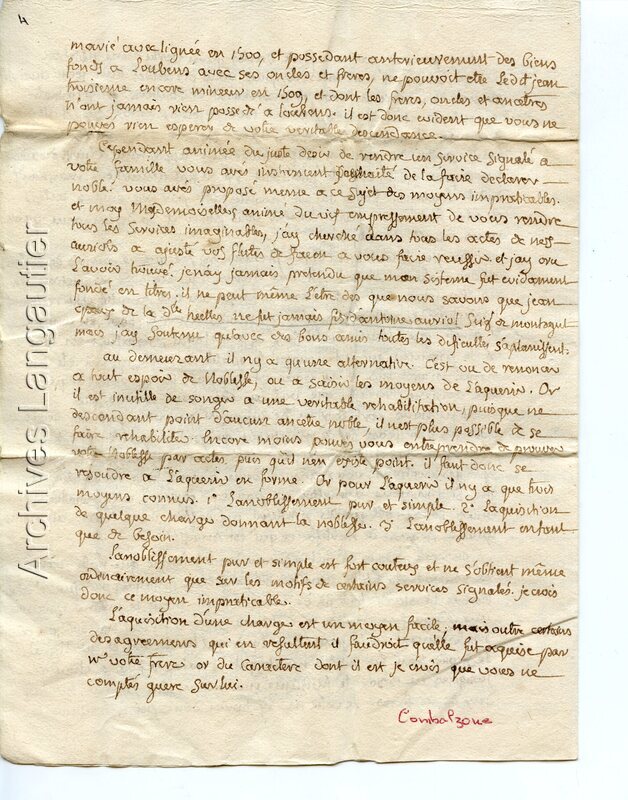 4
marié avec lignée en 1500, et possedant anterieurement des biens
fonds a Loubens avec ses oncles et freres, ne pouvoit etre Led.t jean
troisieme encore mineur en 1509, et dont les freres, oncles et ancetres
n'ont jamais rien possedé a Loubens. il est donc evident que vous ne
pouvés rien esperer de votre veritable descendance.
Cependant animée du juste desir de rendre un service signalé a
votre famille vous avés instament souhaité de la faire declarer
noble vous avés proposé meme a ce sujet des moyens impraticables.
et moy Mademoiselle animé du vif empressement de vous rendre
tous les services imaginables, j'ay cherché dans tous les actes de
auriols a ajuste vos flutes de façon a vous faire reussir et j'ay cru
L'avoir trouvé. je n'ay jamais pretendu que mon sisteme fut evidament
fondé en titres. il ne peut même L'etre, des que nous savons que jean
epoux de la d.lle huelles ne fut jamais fils d'antoine auriol Sg.r de montagut
mais j'ay soutenu qu'avec des bons amis toutes les difficultés s'aplanissent.
au demeurant il n'y a qu'une alternative. C'est ou de renoncer
a tout espoir de Noblesse, ou a saisir les moyens de L'aquerir. Or
il est inutille de songer a une veritable rehabilitation, puisque ne
descendant point d'aucun ancetre noble, il n'est plus possible de se
faire rehabiliter. Encore moins pouvés vous entreprendre de prouver
votre Noblesse par actes puis qu'il n'en existe point. il faut donc se
resoudre a L'aquerir en forme. Or pour L'aquerir il n'y a que trois
moyens connus. 1° L'anoblissement pur et simple. 2° L'aquisition
de quelque charge donnant la noblesse. 3° L'anoblissement en tant
que de besoin.
L'anoblissement pur et simple est fort couteux et ne s'obtient même
ordinairement que sur les motifs de certains services signalés. je crois
donc ce moyen impraticable.
L'aquisition d'une charge est un moyen facile. mais outre certains
desagreemens qui en resultent il faudroit qu'elle fut aquise par
m.r votre frere or du caractere dont il est je crois que vous ne
comptés guere sur lui.
Combalzone
Archives Langautier